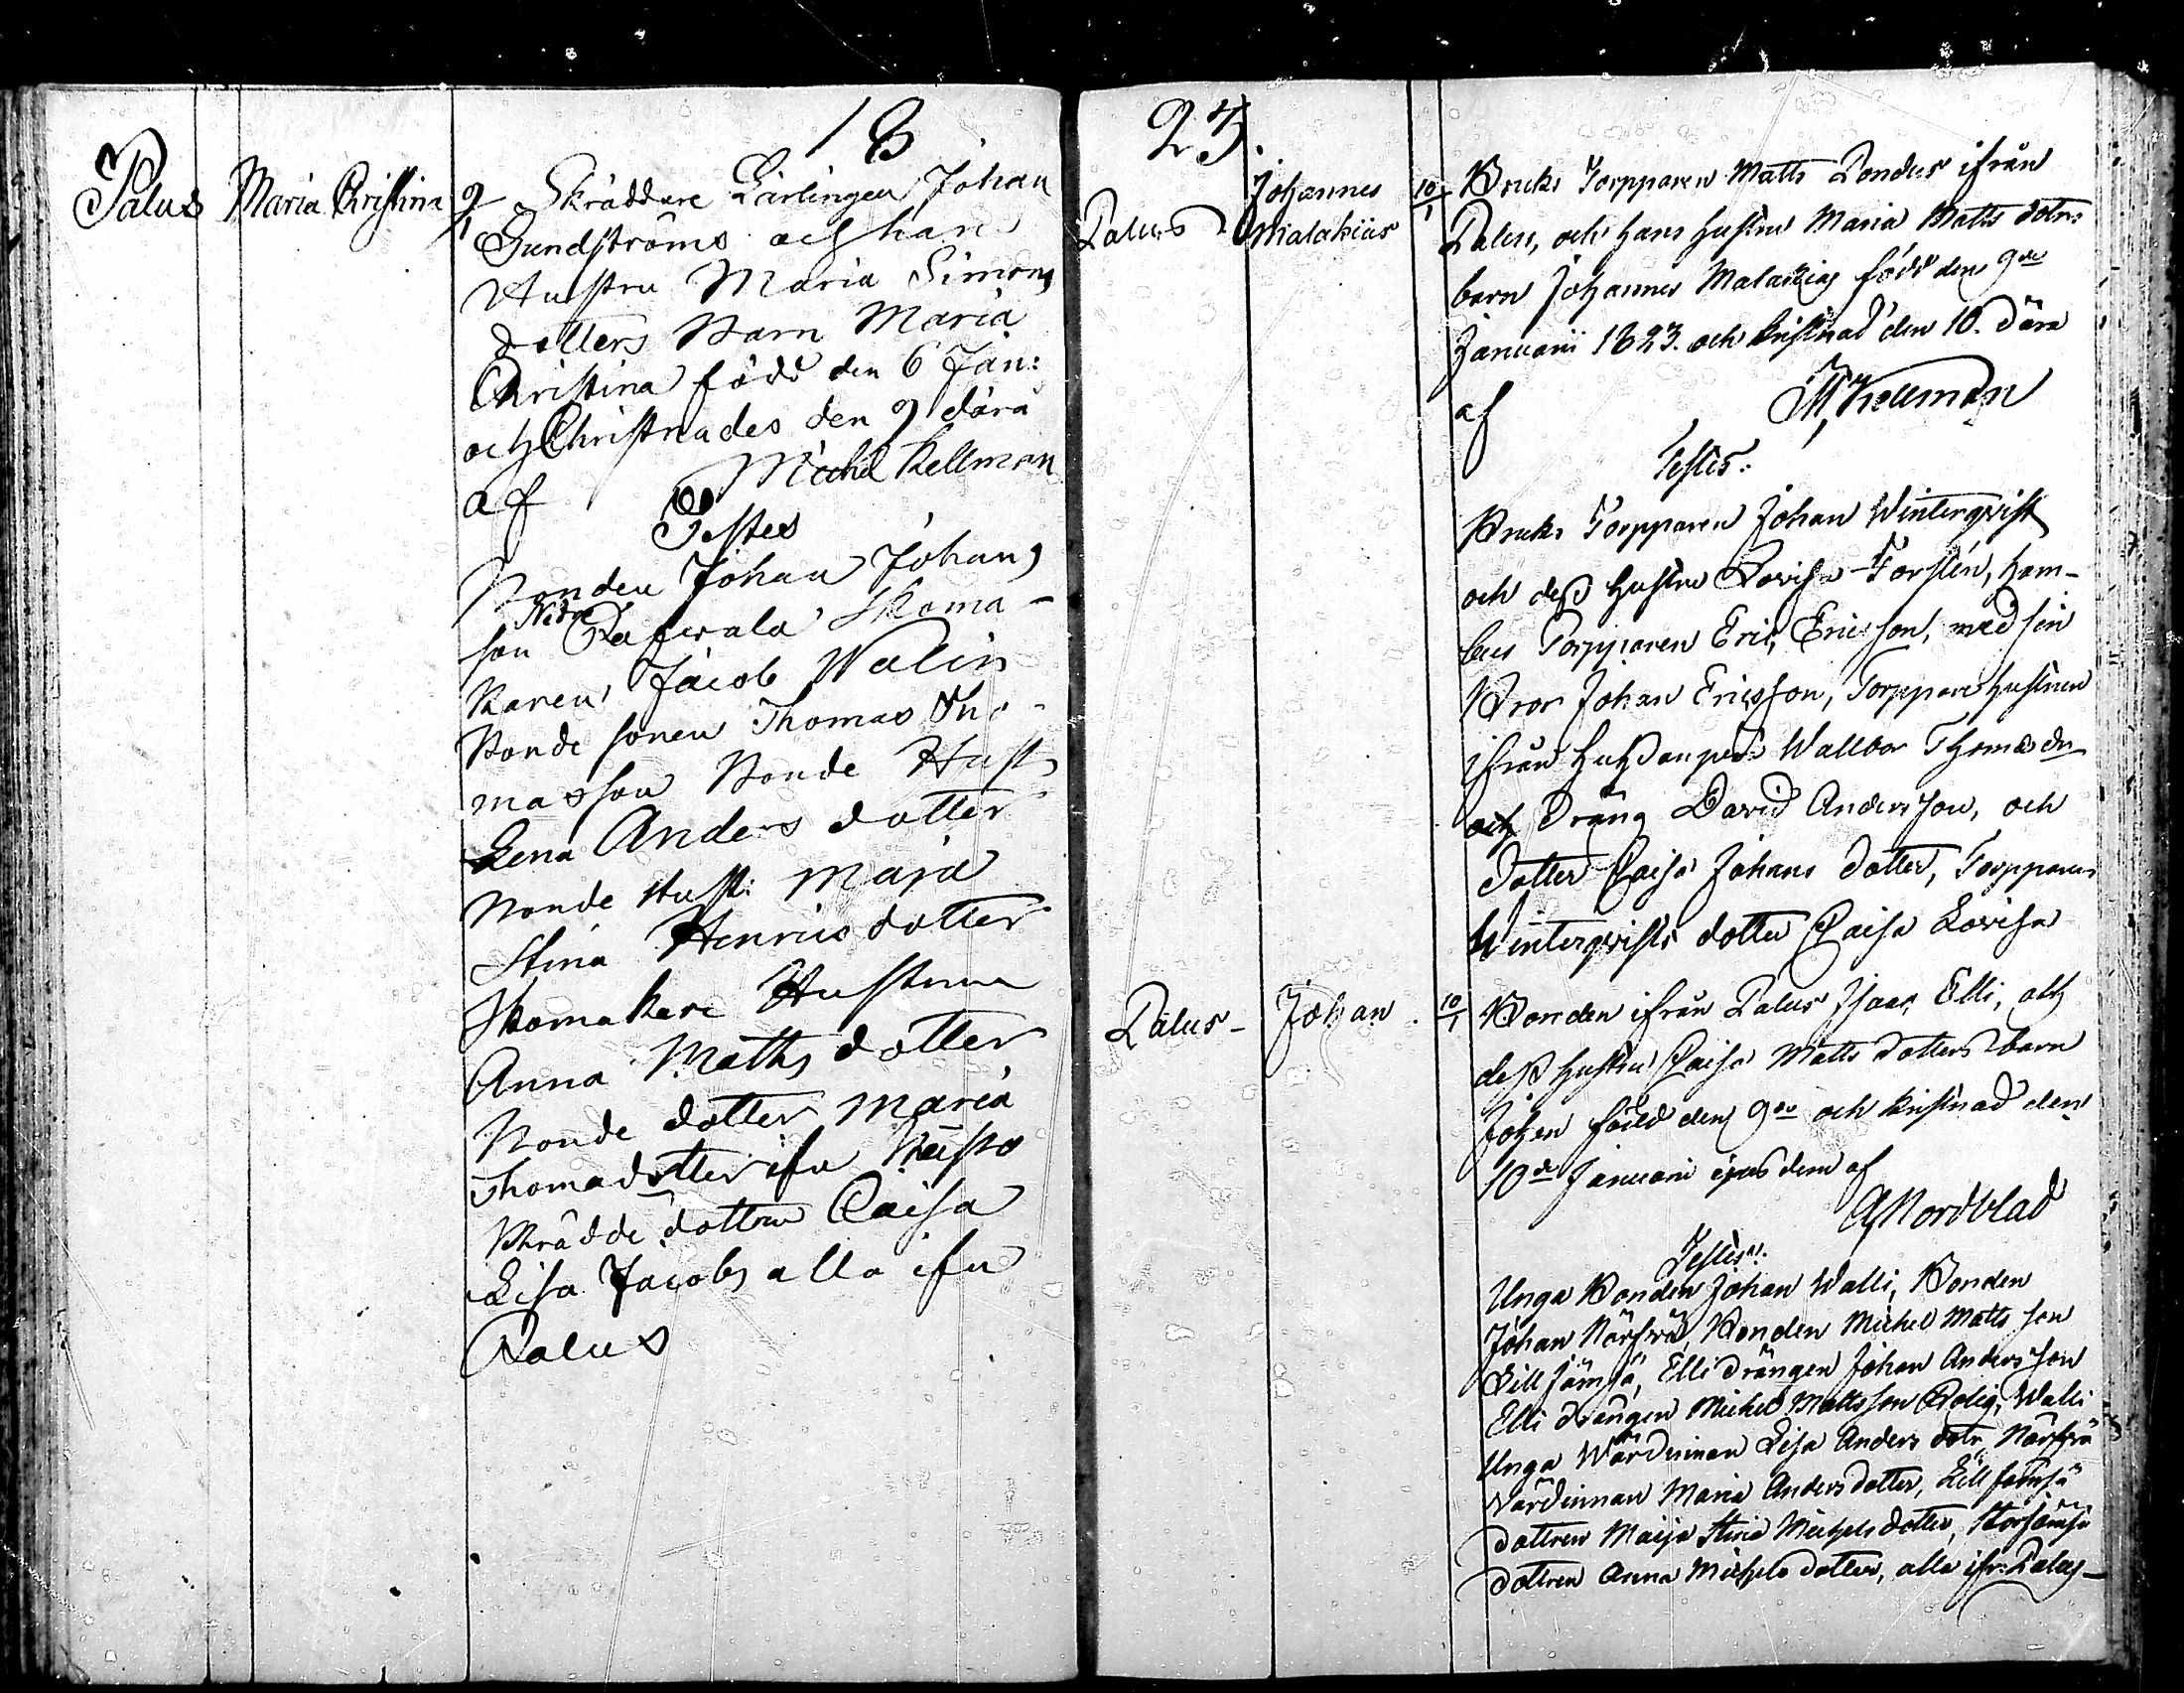 18
Palus Maria Christina 9/1 Skräddare Lärlingen Johan
Sundströms och hans
Hustru Maria Simons
dotters Barn Maria
Christina född den 6 Jan:
och Christnades den 9 dåra
af Michel Kellman
Testes
Bonden Johan Johans
son Nedre Skoma-
karen Jacob Walin
Bonde sonen Thomas Tho-
masson Bonde Hust
Lena Anders dotter
Bonde Hust: Maja
Stina Henrics dotter
Skomakare Hustrun
Anna Maths dotter
Bonde dotter Maria
Thomadotter ifrn
Skrädde dottren Caisa
Lisa Jacobs alla ifrn
Palus
23.
Palus Johannes Malakias 10/1 Bruks Torpparen Matts Pondus ifrån
Palus, och hans hustru Maria Matts dotrs
barn Johannes Malakias född den 9de
Januarii 1823. och kristnad den 10. dära
af M, Kellman
Testes:
Bruks Torpparen Johan Winterqvist
och dess hustru Lovisa Forstén,
Torpparen Eric Ericsson, med sin
Bror Johan Ericsson, Torppare hustrun
ifrån Wallbor Thomas dr
och dräng David Andersson, och
dotter Caisa Johans dotter, Torpparen
Winterqvists dotter Caisa Lovisa
Palus- Johan. 10/1 Bonden ifrån Palus Isaac Elli, och
dess hustru Caisa Matts dotters barn
Johan född den 9de och kristnad den
10de Januarii ejusdem af
A Nordblad
Testes:
Unga Bonden Johan Walli, Bonden
Johan Närfvä, Bonden Michel Matts son
Lill Jämsä, Elli drängen Johan Andersson
Elli drängen Michel Mattsson Rolig, Walli
Unga Värdinnan Lisa Anders dotr, Närfvä
värdinnan Maria Anders dotter, Lill Jämsä
dottren Maija Stina Michels dotter, Storjämsä
dottren Anna Michels dotter, alla ifr: Palus-